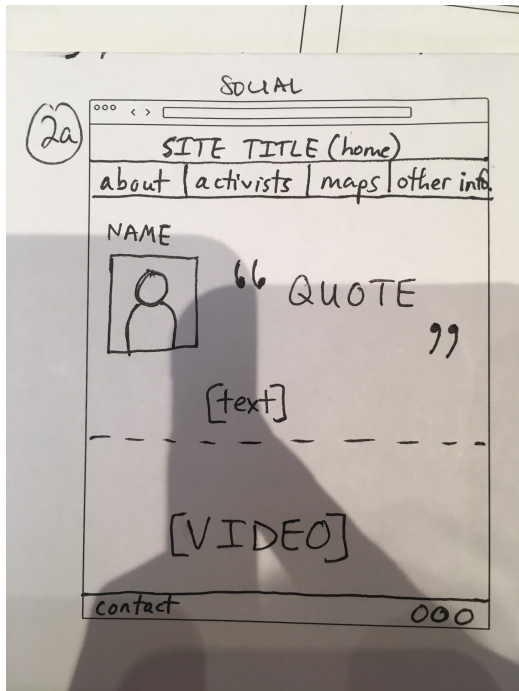 SOCIAL
2a
SITE TITLE (home)
about activists maps other info.
NAME
“ QUOTE ”
[text]
[VIDEO]
contact